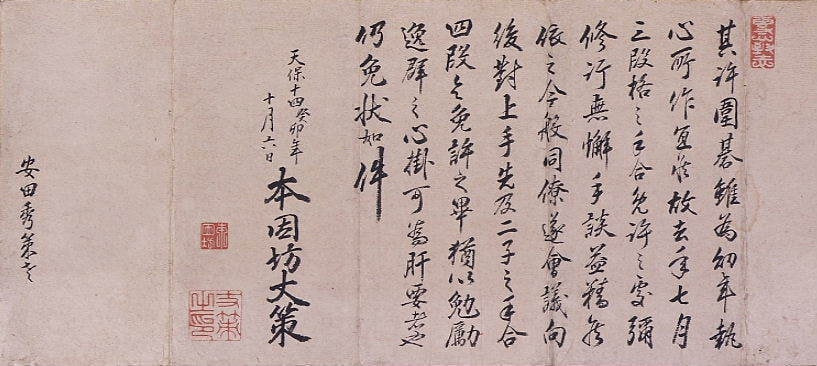 其許圍碁雖為幼年執
心所作宜故去年七月
三段格之手合免許之處彌
修行無懈手談益精
依之今般同僚遂會議向
後對上手先及二子之手合
四段令免許之畢猶以勉勵
逸群之心掛可為肝要者也
仍免状如件
天保十四癸卯年
十月六日
本因坊丈策
本因坊
丈策之印
安田秀策